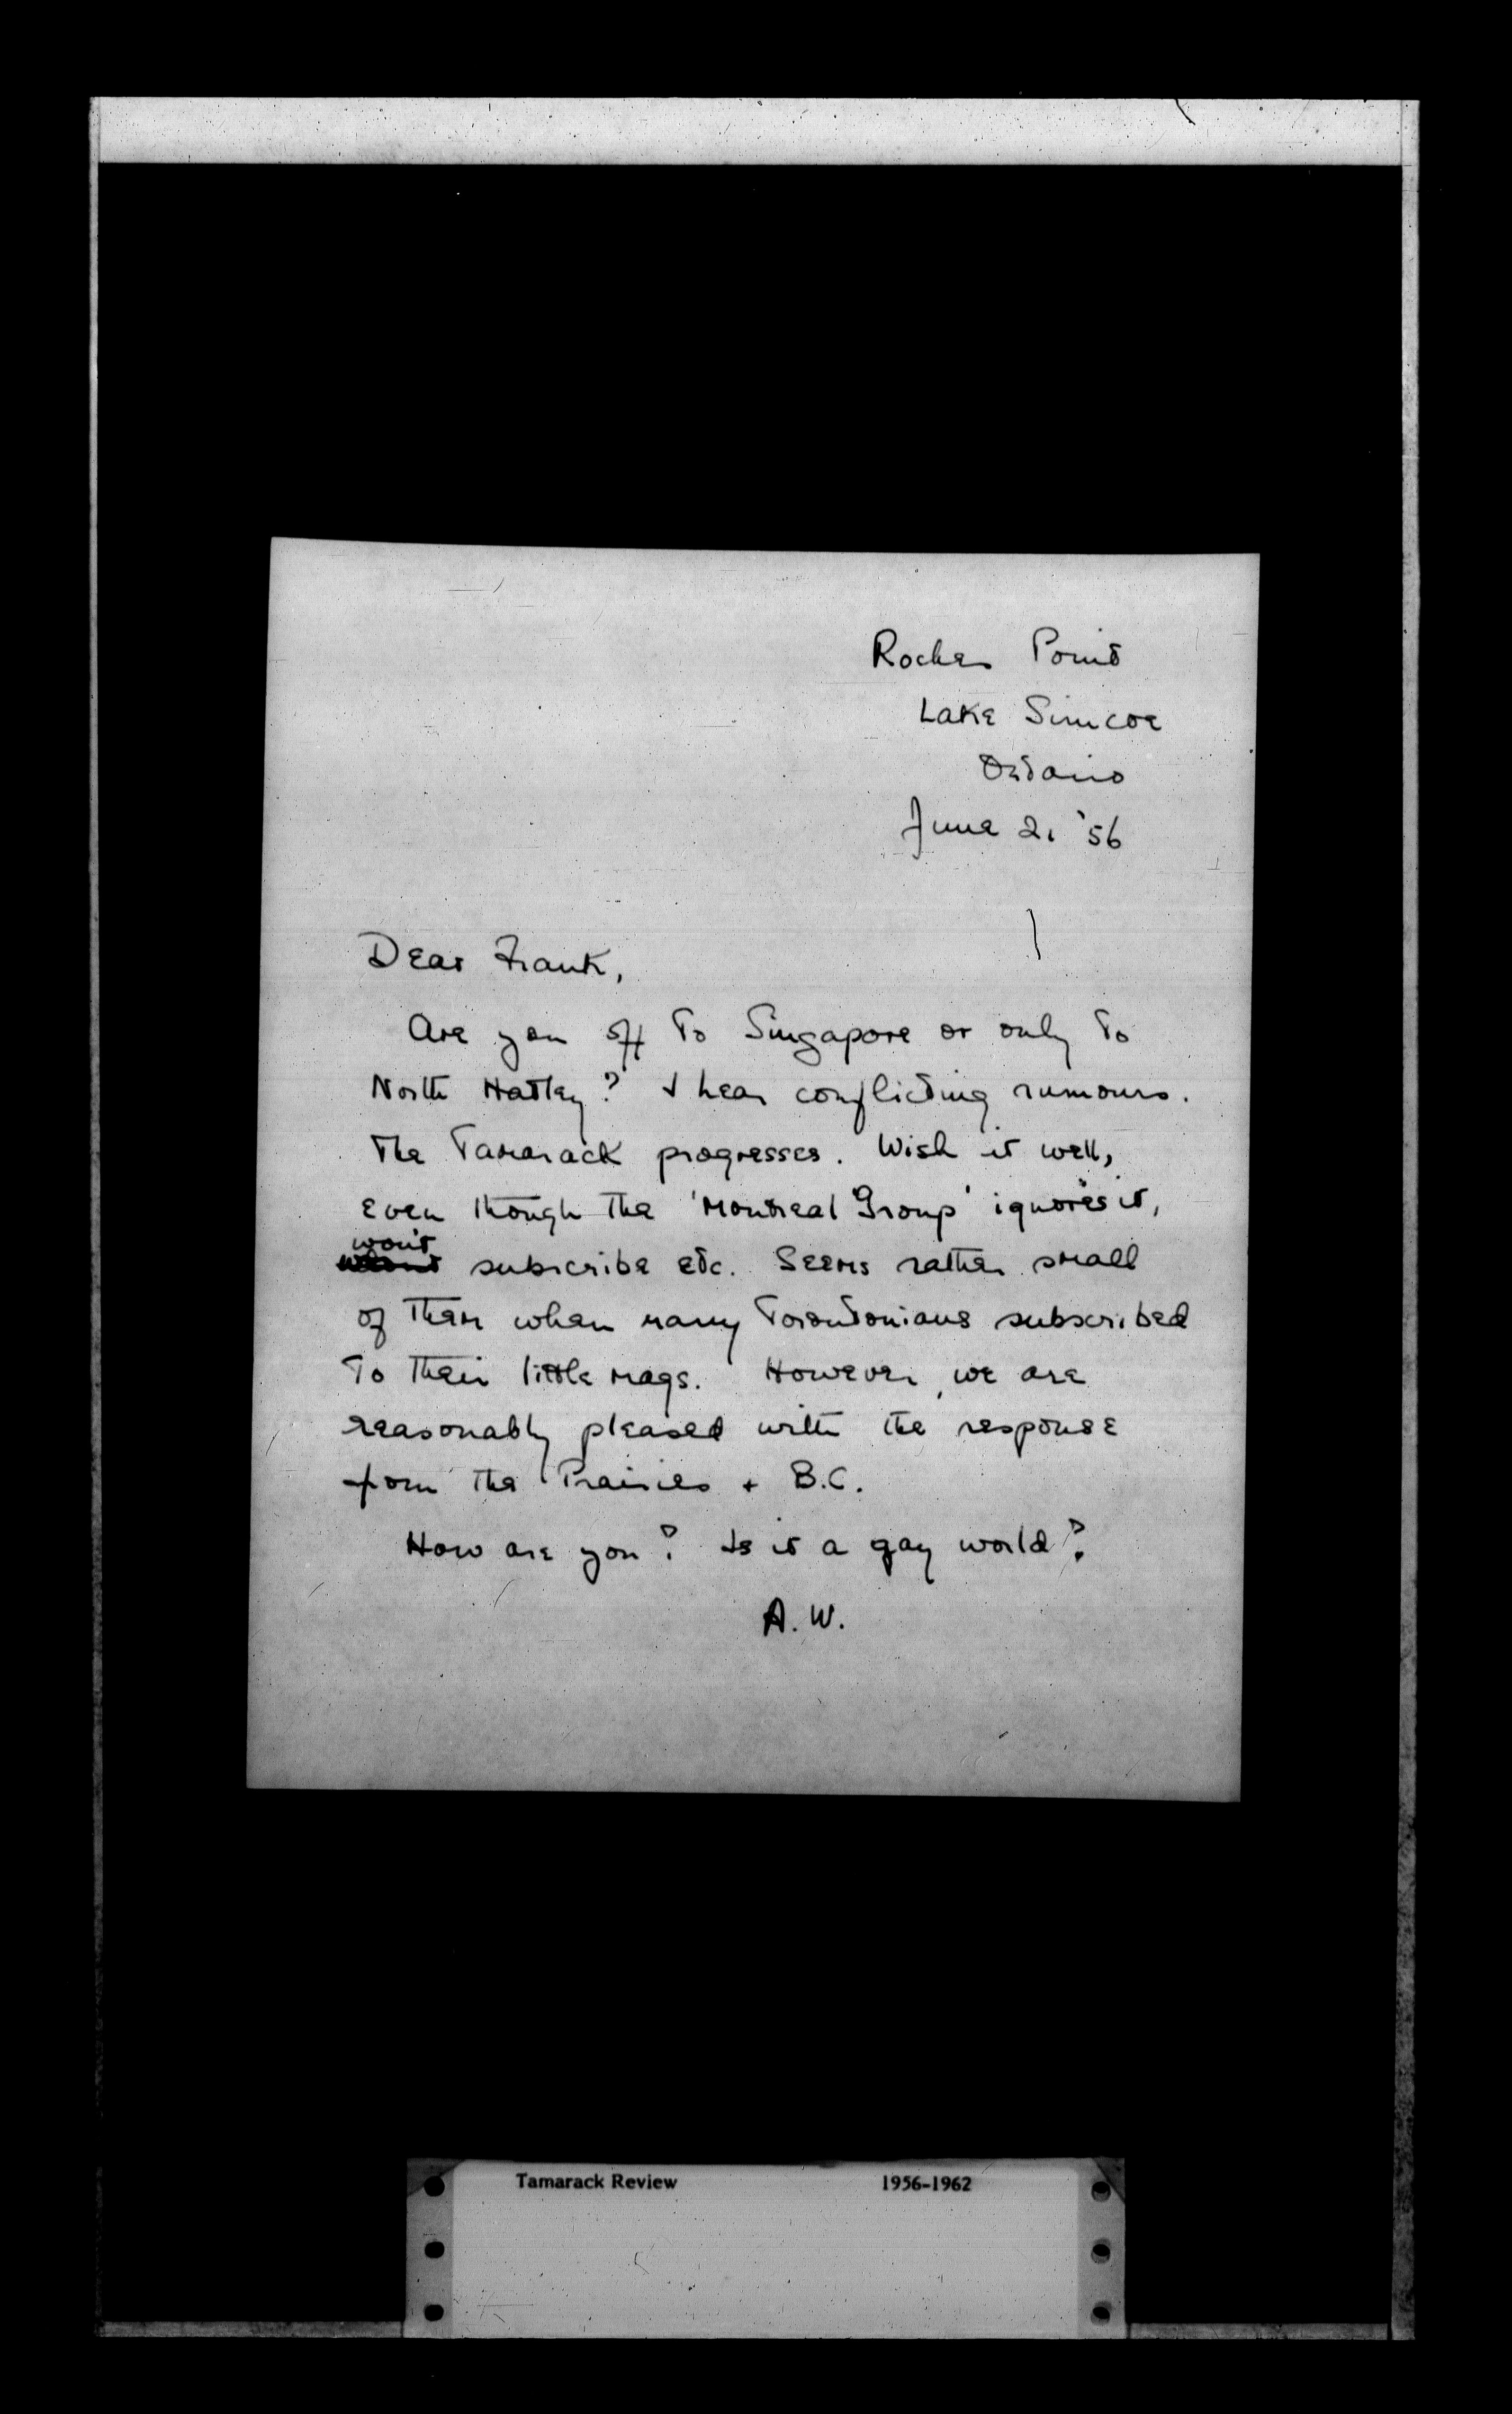 Roches Point
Lake Simcoe
Ontario
June 21 '56
Dear Frank,
Are you off to Singapore or only to
North Hatley? I hear conflicting rumours.
The Tamarack progresses. Wish it well,
even though the 'Montreal Group' ignores it,
won't
subscribe etc. Seems rather small
of them when many Torontonians subscribed
to their little mags. However, we are
reasonably pleased with the response
from the Prairies + B.C.
How are you? Is it a gay world?
A.W.
Tamarack Review 1956-1962